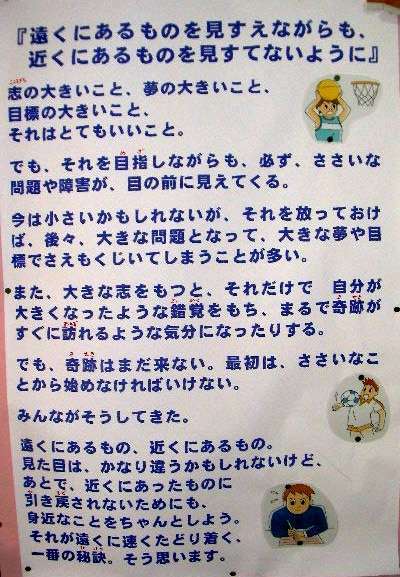 『遠くにあるものを見すえながらも、
近くにあるものを見すてないように』
志の大きいこと、夢の大きいこと、
目標の大きいこと、
それはとてもいいこと。
でも、それを目指しながらも、必ず、ささいな
問題や障害が、目の前に見えてくる。
今は小さいかもしれないが、それを放っておけ
ば、後々、大きな問題となって、大きな夢や目
標でさえもくじいてしまうことが多い。
また、大きな志をもつと、それだけで 自分が
大きくなったような錯覚をもち、まるで奇跡が
すぐに訪れるような気分になったりする。
でも、奇跡はまだ来ない。最初は、ささいなこ
とから始めなければいけない。
みんながそうしてきた。
遠くにあるもの、近くにあるもの。
見た目は、かなり違うかもしれないけど、
あとで、近くにあったものに
引き戻されないためにも、
身近なことをちゃんとしよう。
それが遠くに速くたどり着く、
一番の秘訣。そう思います。